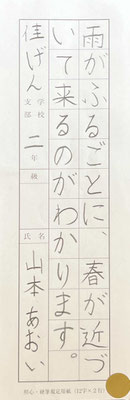 雨がふるごとに、春が近づ
いて来るのがわかります。
佳げん 学校支部 二年級 氏名 山本あおい
硬筆鑑定用紙(12字×2行)